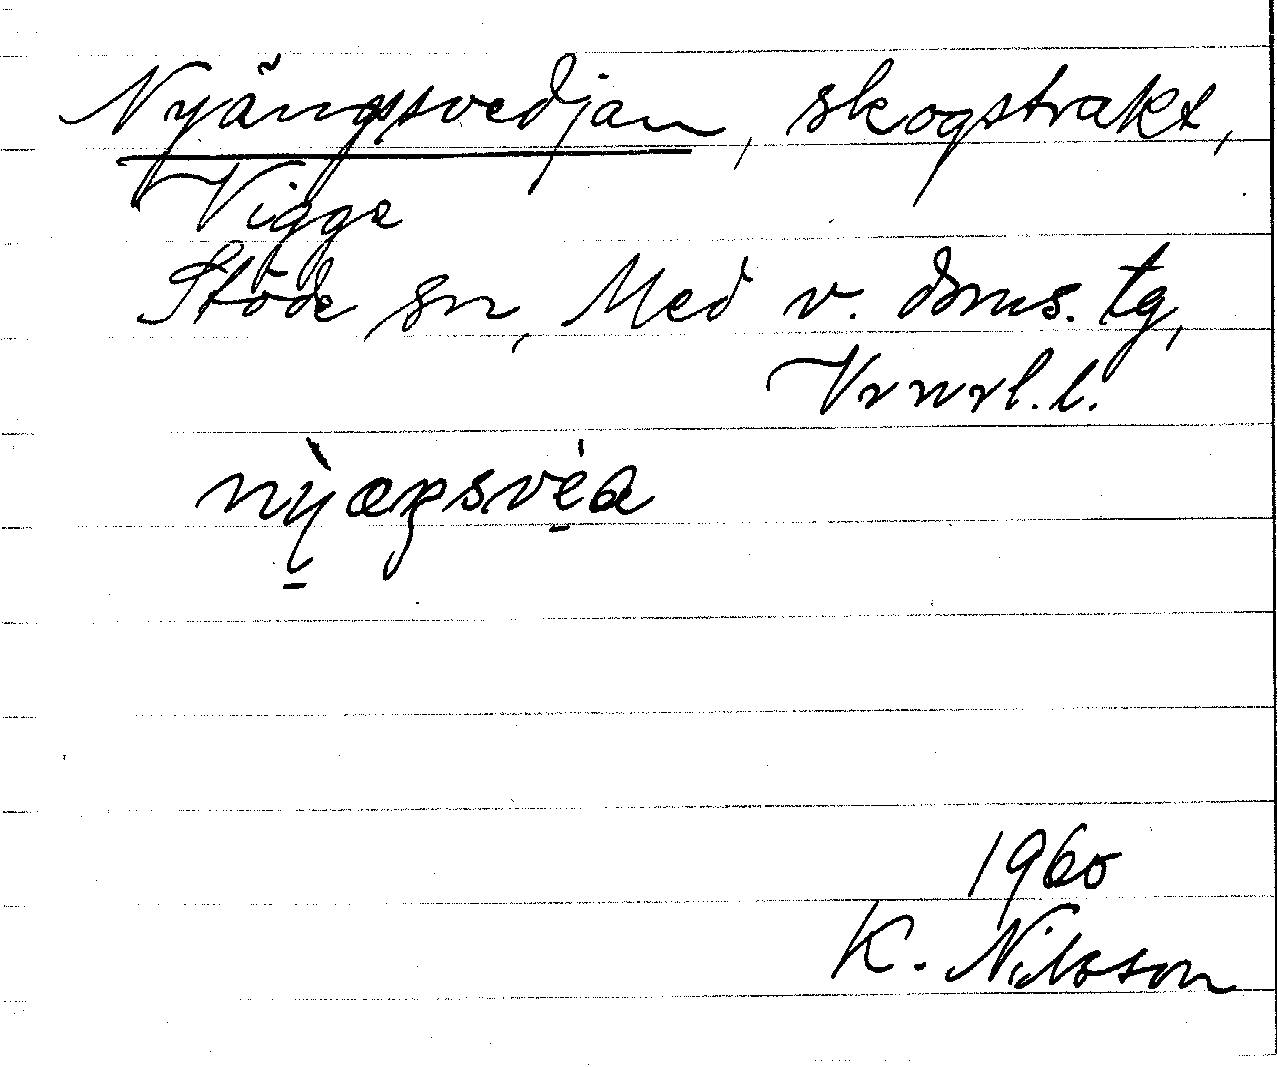 Nyängsvedjan, skogstrakt,
Vigge
Stöde sn, Med v. doms. tg,
Vrnrl. l.
nỳæŋsvéa
1960
K. Nilsson